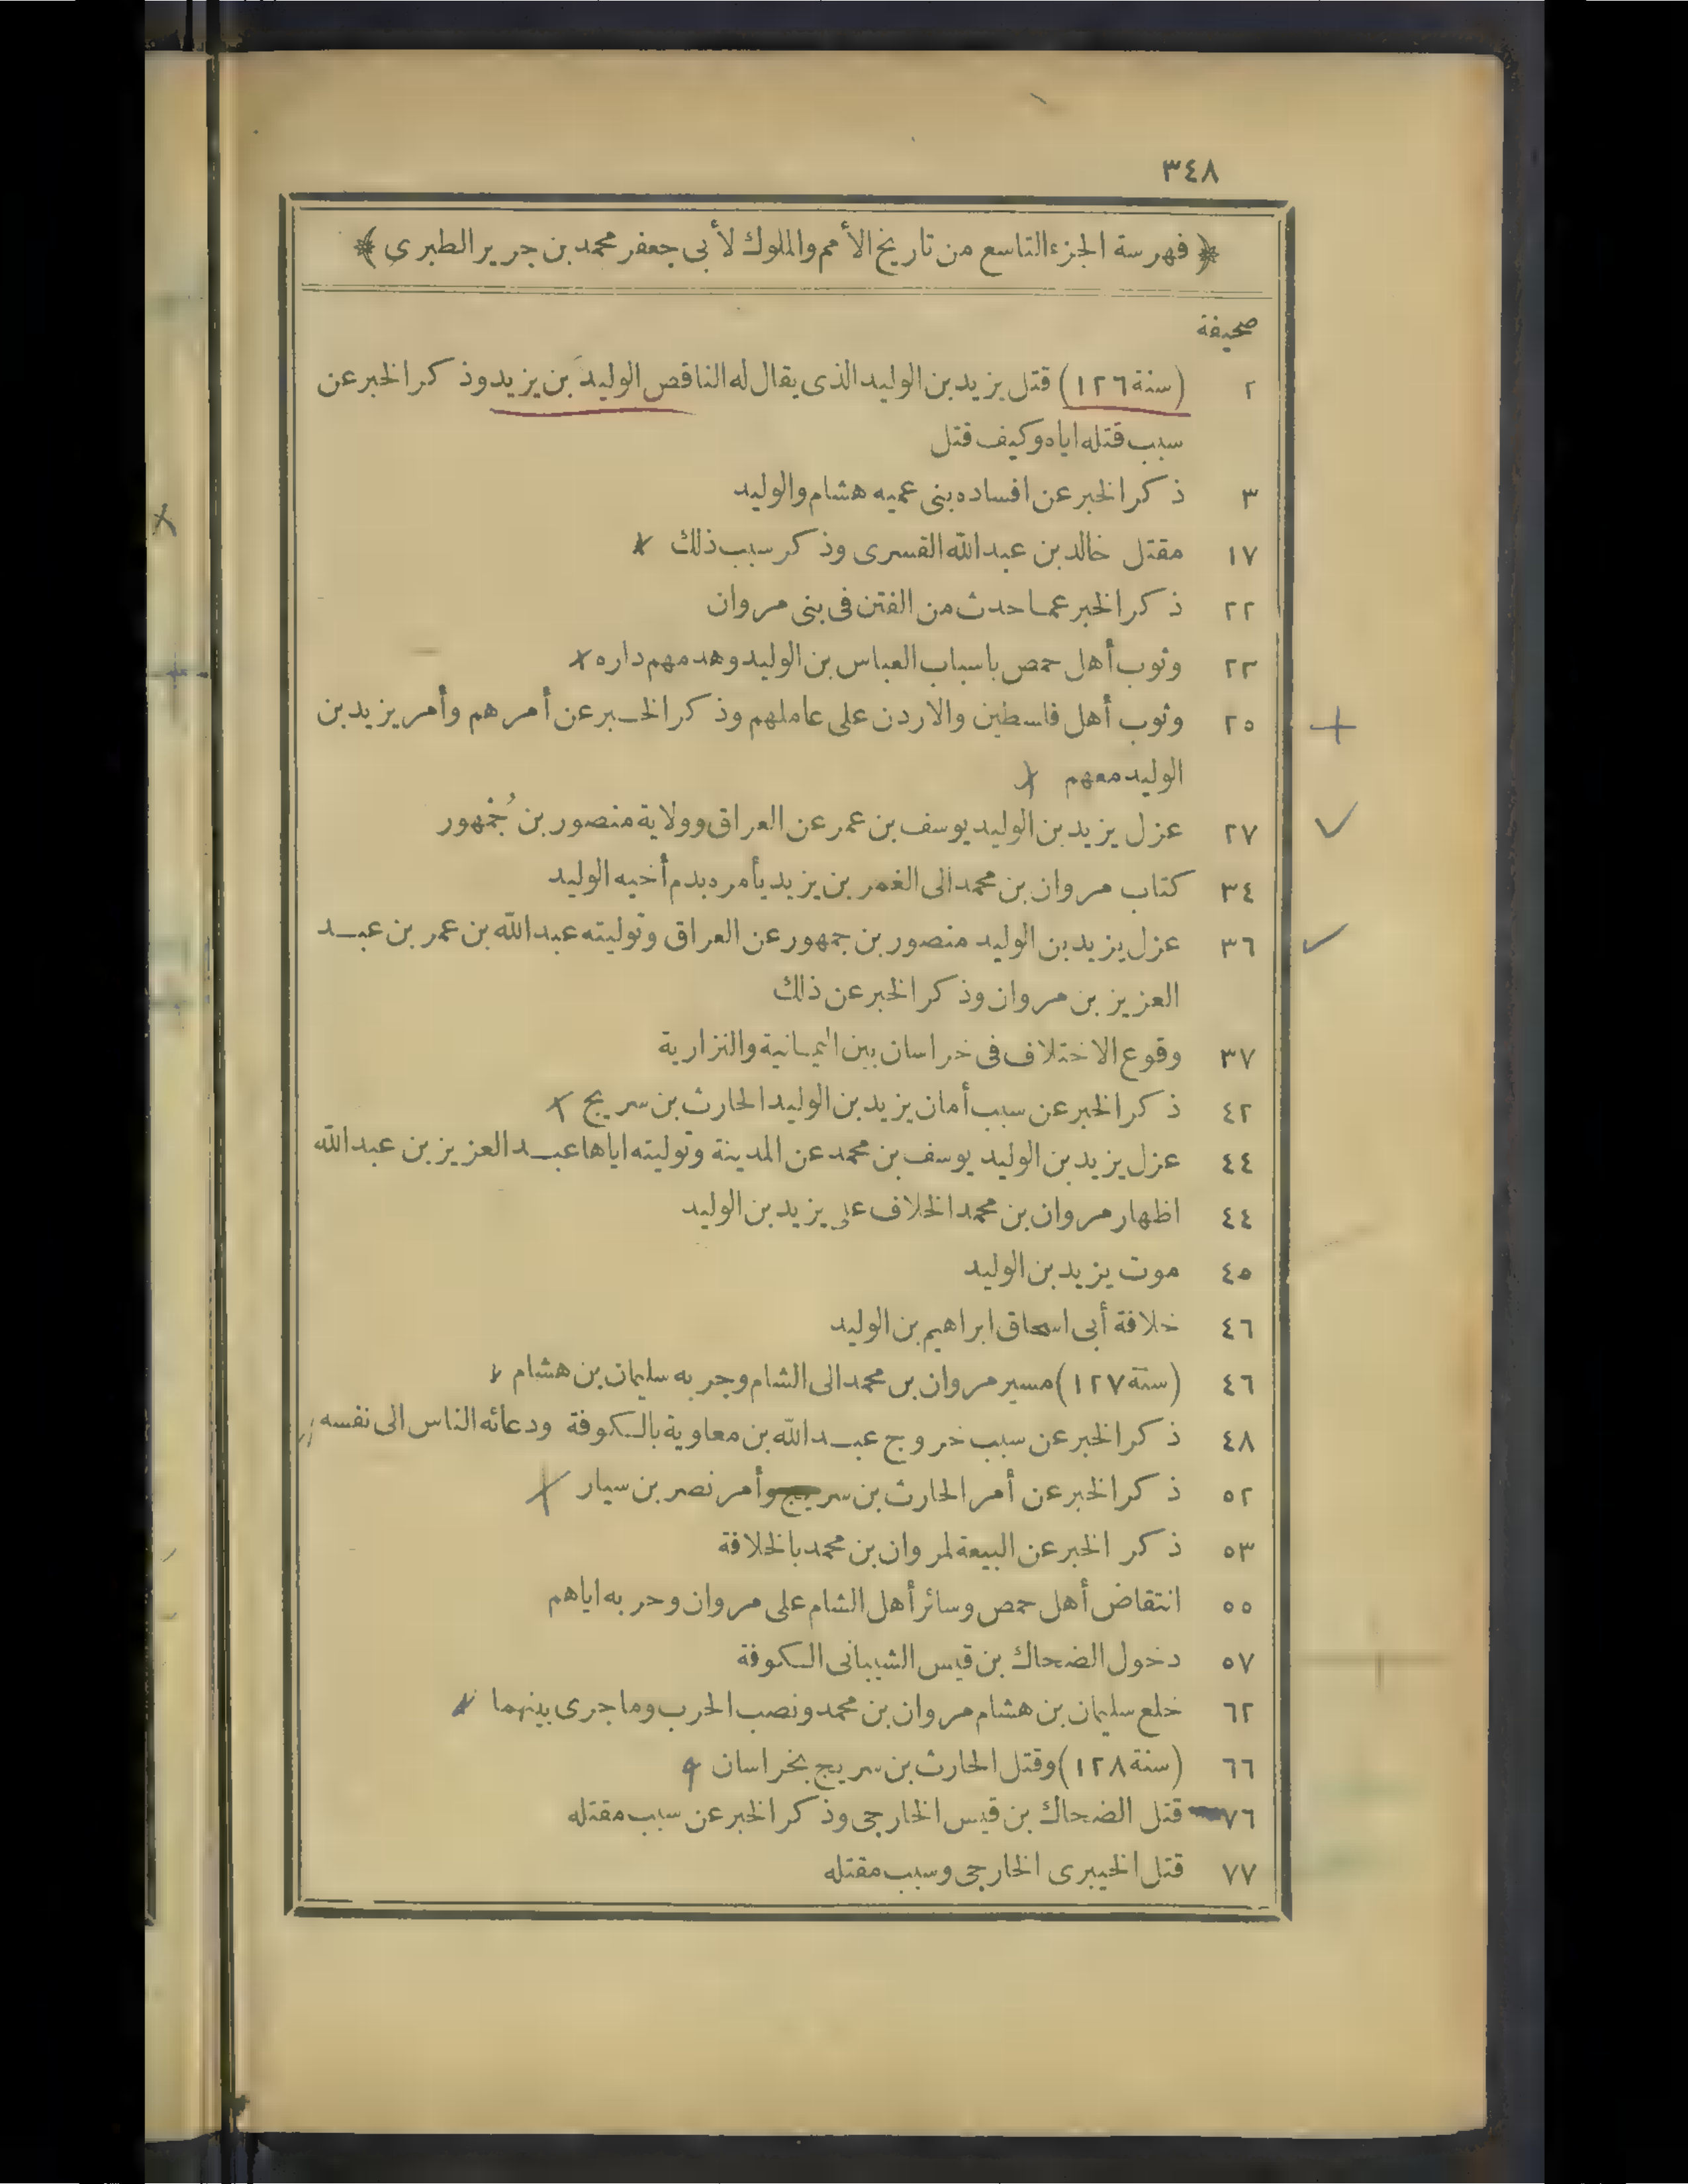 ٣٤٨
﴿ فهرسة الجزء التاسع من تاريخ الأمم والملوك لأبى جعفر محمد بن جرير الطبرى ﴾
صحيفة
٢ (سنة ١٢٦) قتل يزيد بن الوليد الذى يقال له الناقص الوليد بن يزيد وذكر الخبر عن
سبب قتله اياه وكيف قتل
٣ ذكر الخبر عن افساده بنى عميه هشام والوليد
١٧ مقتل خالد بن عبد الله القسرى وذكر سبب ذلك
٢٢ ذكر الخبر عما حدث من الفتن فى بنى مروان
٢٣ وثوب أهل حمص باسباب العباس بن الوليد وهدمهم داره
٢٥ وثوب أهل فلسطين والاردن على عاملهم وذكر الخبر عن أمرهم وأمر يزيد بن
الوليد معهم
٢٧ عزل يزيد بن الوليد يوسف بن عمر عن العراق وولاية منصور بن جُمْهور
٣٤ كتاب مروان بن محمد الى الغمر بن يزيد يأمره بدم أخيه الوليد
٣٦ عزل يزيد بن الوليد منصور بن جمهور عن العراق وتوليته عبد الله بن عمر بن عبد
العزيز بن مروان وذكر الخبر عن ذلك
٣٧ وقوع الاختلاف فى خراسان بين اليمانية والنزارية
٤٢ ذكر الخبر عن سبب أمان يزيد بن الوليد الحارث بن سريج
٤٤ عزل يزيد بن الوليد يوسف بن محمد عن المدينة وتوليته اياها عبد العزيز بن عبد الله
٤٤ اظهار مروان بن محمد الخلاف على يزيد بن الوليد
٤٥ موت يزيد بن الوليد
٤٦ خلافة أبى اسحاق ابراهيم بن الوليد
٤٦ (سنة ١٢٧) مسير مروان بن محمد الى الشام وحربه سليمان بن هشام
٤٨ ذكر الخبر عن سبب خروج عبد الله بن معاوية بالكوفة ودعائه الناس الى نفسه
٥٢ ذكر الخبر عن أمر الحارث بن سريج وأمر نصر بن سيار
٥٣ ذكر الخبر عن البيعة لمروان بن محمد بالخلافة
٥٥ انتقاض أهل حمص وسائر أهل الشام على مروان وحربه اياهم
٥٧ دخول الضحاك بن قيس الشيبانى الكوفة
٦٢ خلع سليمان بن هشام مروان بن محمد ونصب الحرب وما جرى بينهما
٦٦ (سنة ١٢٨) وقتل الحارث بن سريج بخراسان
٧٦ قتل الضحاك بن قيس الخارجى وذكر الخبر عن سبب مقتله
٧٧ قتل الخيبرى الخارجى وسبب مقتله